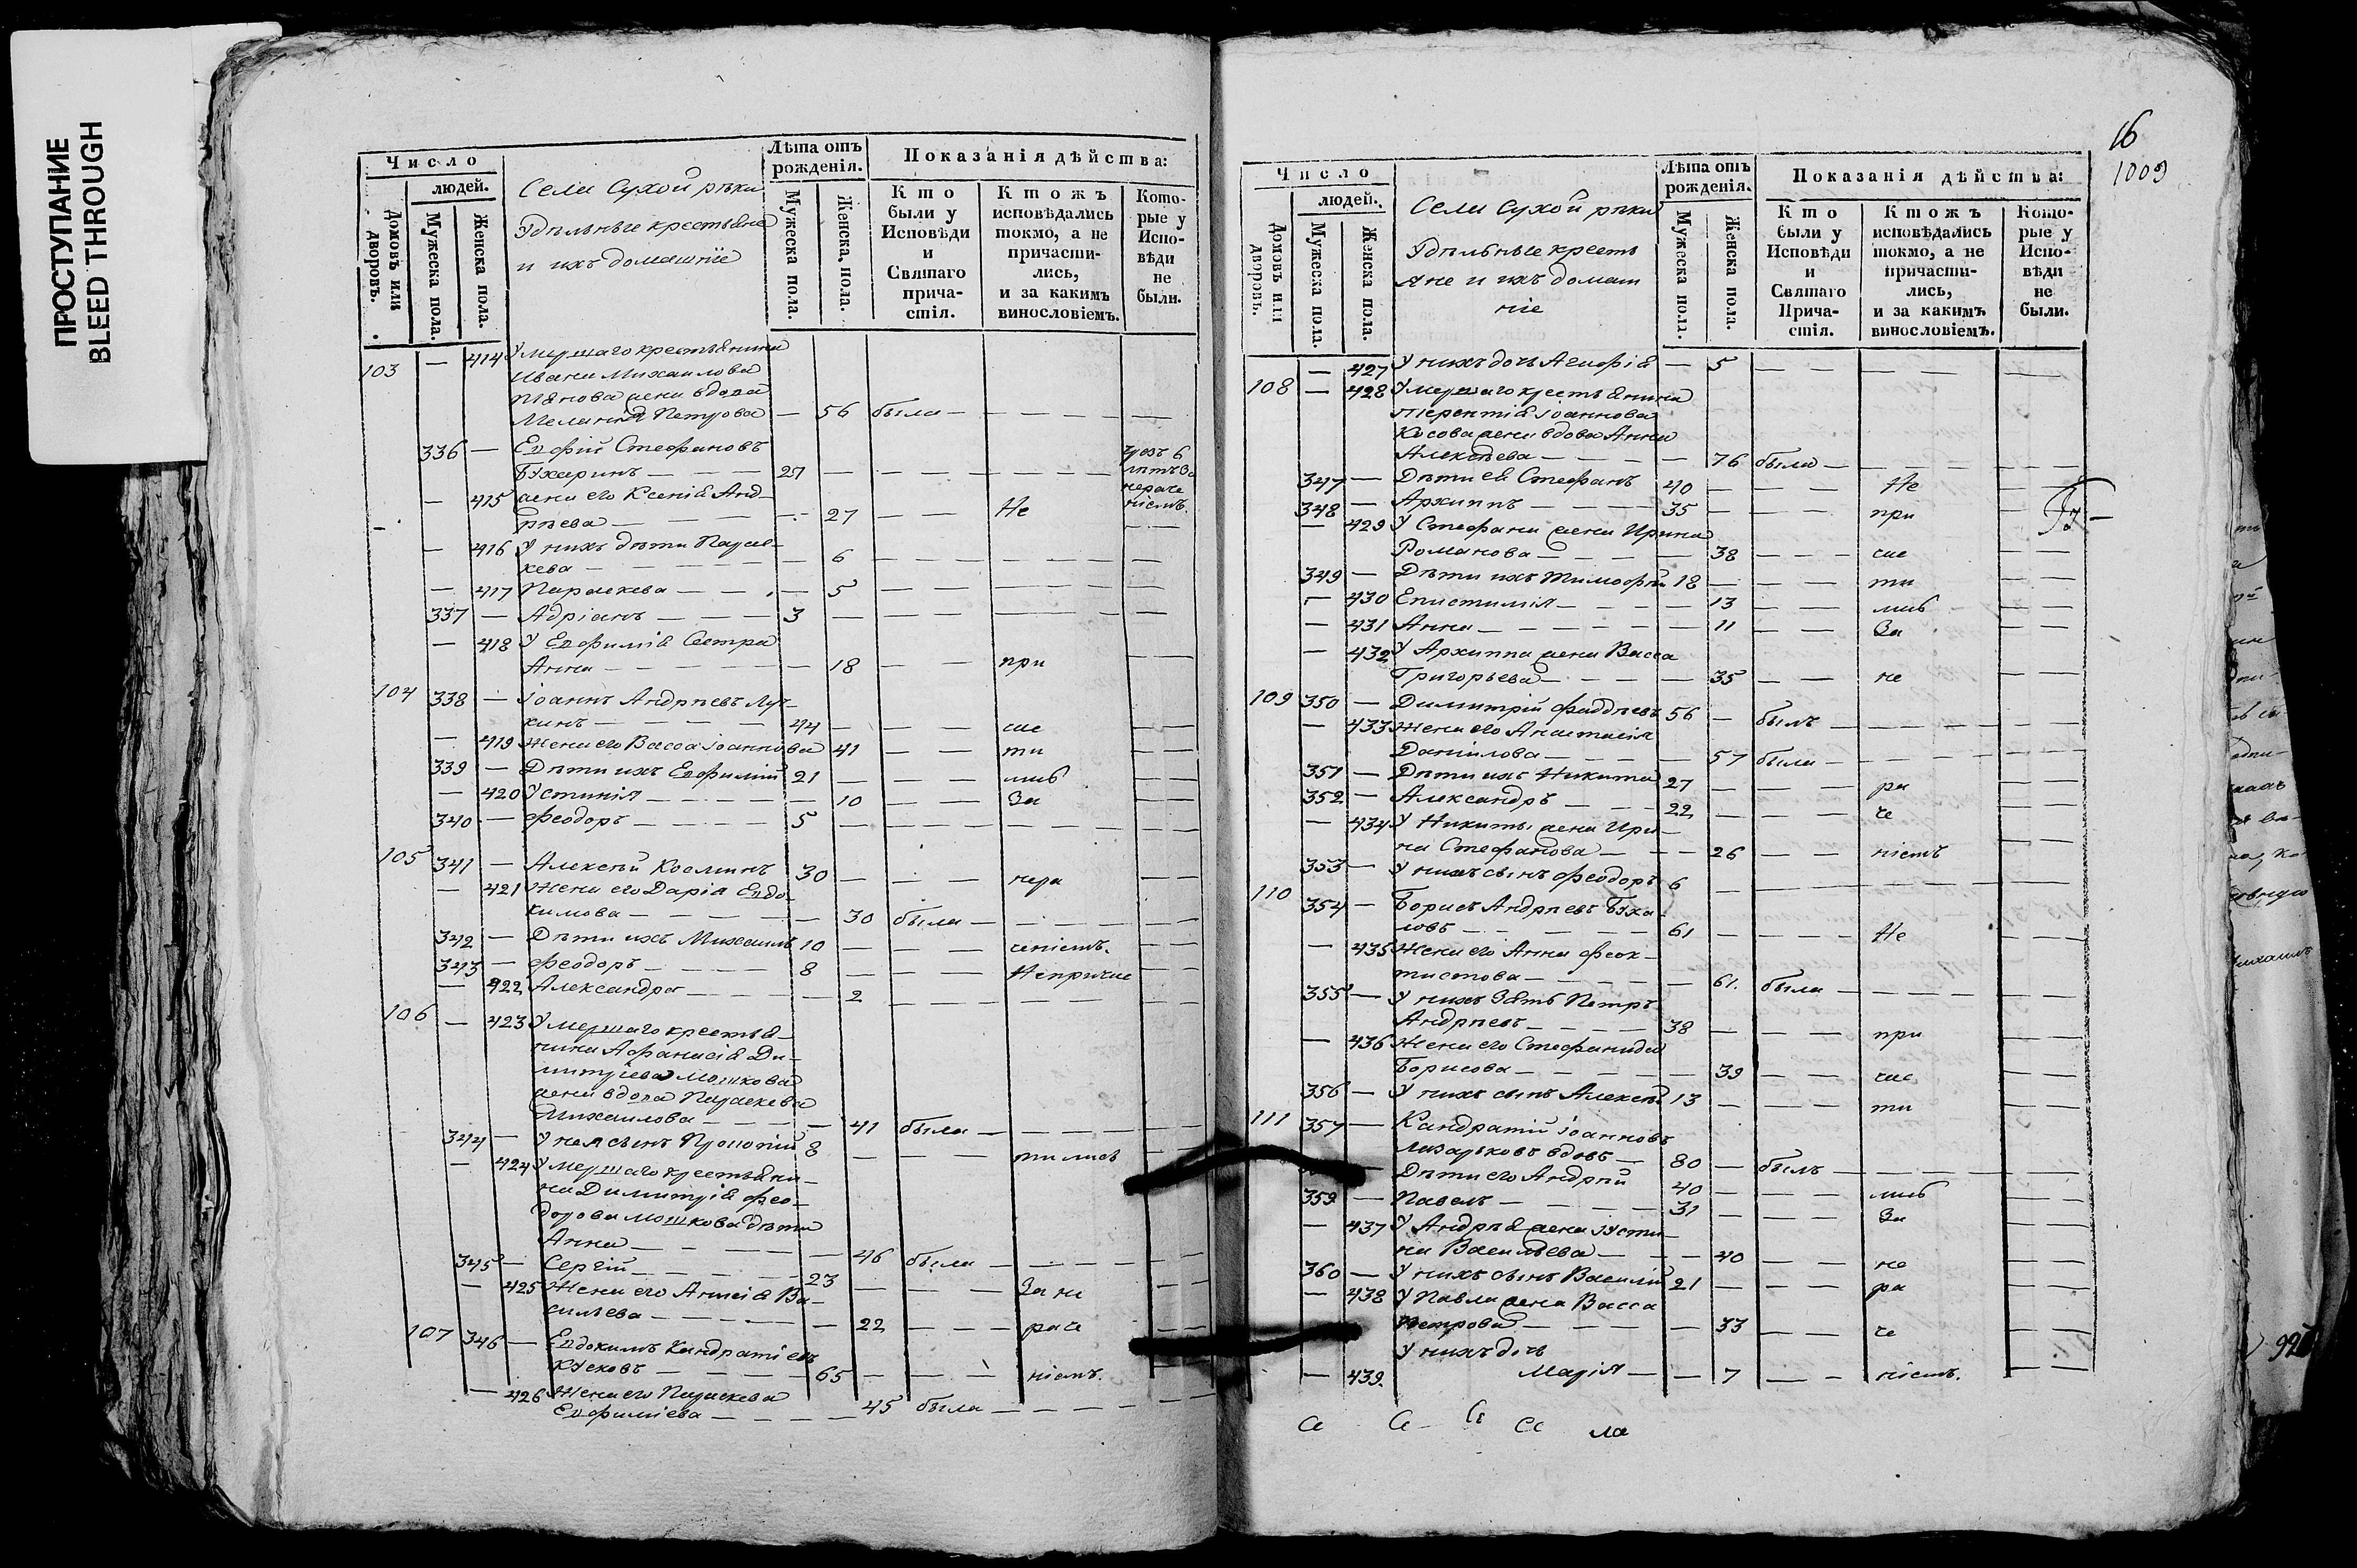 ПРОСТУПАНИЕ
BLEED THROUGH
Число
людей.
Домовъ или дворовъ.
Мужеска пола.
Женска пола.
Села Сухой рѣки
Удѣльные крестьяне
и ихъ домашніе
Лѣта отъ рожденія.
Мужеска пола.
Женска пола.
Показанія дѣйства:
Кто были у Исповѣди и Святаго причастія.
Ктожъ исповѣдались токмо, а не причастились, и за какимъ винословіемъ.
Которые у Исповѣди не были.
103 — 414 Умершаго крестьянина
Ивана Михаилова
жена вдова
Меланія Петрова — 56 была — — — — —
336 — Евфимій Стефановъ
27 — — — — — —
— 415 жена его Ксенія Анд-
рѣева — — — 27 — — Не — —
— 416 У нихъ дѣти Парас-
кева — — — 6 — — — — —
— 417 Параскева — — — 5 — — — — —
337 — Адріанъ — — — 3 — — — — — —
— 418 У Евфимія Сестра
Анна — — — 18 — — при — —
104 338 — Іоаннъ Андрѣевъ Лу-
кинъ — — — 44 — — — час — —
— 419 Жена его Васса Іоаннова 41 — — ти — —
339 — Дѣти ихъ Евфимій 21 — — — лись — —
— 420 Устинія — — — 10 — — За — —
340 — Феодоръ — — — 5 — — — — — —
105 341 — Алексѣй Косминъ 30 — — — нера — —
— 421 Жена его Дарія Евдо-
кимова — — — 30 была — — — — —
342 — Дѣти ихъ Михаилъ 10 — — — ченіемъ. — —
343 — Феодоръ — — — 8 — — — Непричас — —
— 422 Александра — — — 2 — — — — —
106 — 423 Умершаго крестья-
нина Афанасія Ди-
митріева Мошкова
жена вдова Параскева
Михаилова — — — 41 была — — — —
344 — У нея сынъ Прокопій 8 — — — тились — —
— 424 Умершаго крестьяни-
на Димитрія Фео-
дорова Мошкова дѣти
Анна — — — 46 была — — — —
345 — Сергій — — — 23 — — — За не — —
— 425 Жена его Анисія Ва-
сильева — — — 22 — — — раче — —
107 346 — Евдокимъ Кандратіевъ
Кусковъ — — — 65 — — — ніемъ. — —
— 426 Жена его Параскева
Евфиміева — — — 45 была — — — —
16
1009
Число
людей.
Домовъ или дворовъ.
Мужеска пола.
Женска пола.
Села Сухой рѣки
Удѣльные кресть
яне и ихъ домаш
ніе
Лѣта отъ рожденія.
Мужеска пола.
Женска пола.
Показанія дѣйства:
Кто были у Исповѣди и Святаго Причастія.
Ктожъ исповѣдались токмо, а не причастились, и за какимъ винословіемъ.
Которые у Исповѣди не были.
— 427 У нихъ дочь Агафія — 5 — — — — —
108 — 428 Умершаго крестьянина
Терентія Іоаннова
Косова жена вдова Анна
Алексѣева — — — 76 была — — — — —
347 — Дѣти ея Стефанъ 40 — — — Не — —
348 — Архиппъ — — — 35 — — — при —
— 429 У Стефана жена Ирина
Романова — — — 38 — — — час — —
349 — Дѣти ихъ Тимофѣй 18 — — — ти — —
— 430 Епистимія — — — 13 — — лись — —
— 431 Анна — — — 11 — — За — —
— 432 У Архиппа жена Васса
Григорьева — — — 35 — — не — —
109 350 — Димитрій Фаддѣевъ 56 — былъ — — — — —
— 433 Жена его Анастасія
Даніилова — — — 57 была — — — — —
351 — Дѣти ихъ Никита 27 — — — ра — —
352 — Александръ — — — 22 — — — че — —
— 434 У Никиты жена Ири-
на Стефанова — — — 26 — — ніемъ — —
353 — У нихъ сынъ Феодоръ 6 — — — — — —
110 354 — Борисъ Андрѣевъ Буха-
ловъ — — — 61 — — — Не — —
— 435 Жена его Анна Феок-
тистова — — — 61. была — — — — —
355 — У нихъ Зять Петръ
Андрѣевъ — — — 38 — — — при — —
— 436 Жена его Стефанида
Борисова — — — 39 — — час — —
356 — У нихъ сынъ Алексѣй 13 — — — ти — —
111 357 — Кандратій Іоанновъ
вдовъ — 80 — былъ — — — — —
— Дѣти его Андрѣй 40 — — — лись — —
359 — Павелъ — — — 31 — — — За — —
— 437 У Андрѣя жена Іусти-
на Васильева — — — 40 — — не — —
360 — У нихъ сынъ Василій 21 — — — ра — —
— 438 У Павла жена Васса
Петрова — — — 33 — — че — —
У нихъ дочь
— 439. Марія — — 7 — — ніемъ. — —